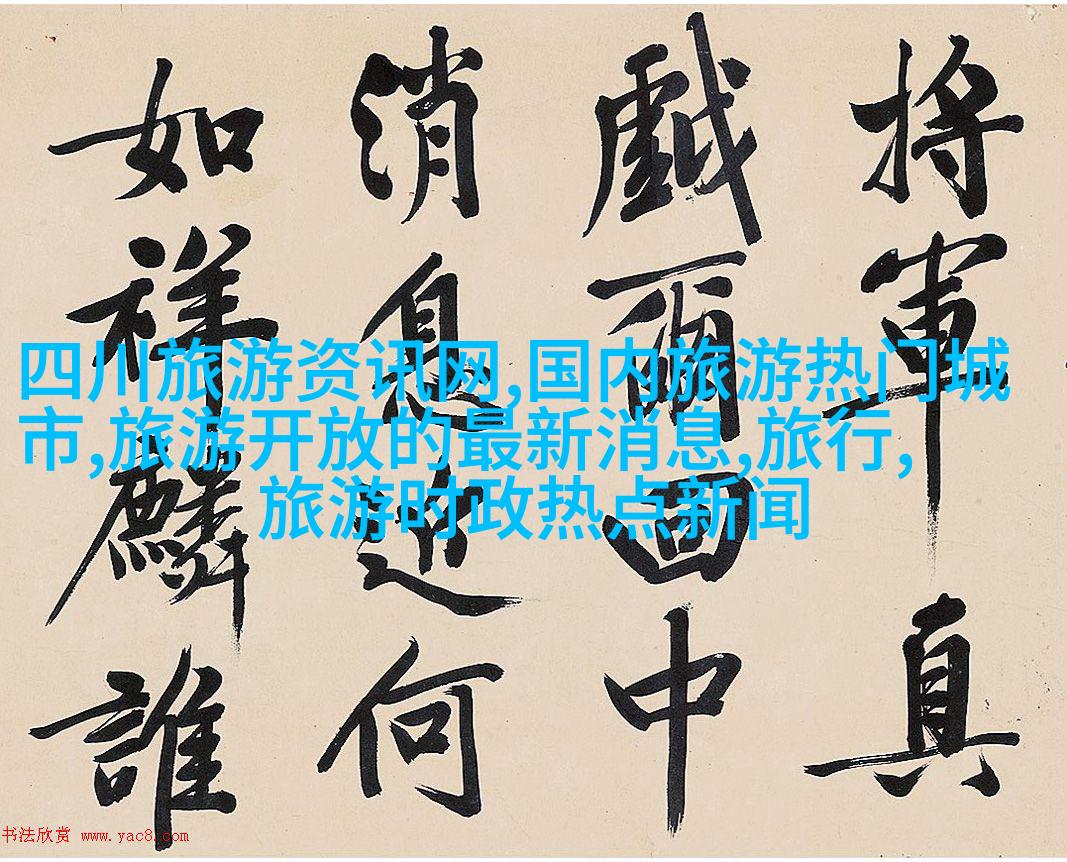 将軍真
戲爾回中
消息何
如祥麟誰
四川旅游资讯网,国内旅游热门城
市,旅游开放的最新消息,旅行,
旅游时政热点新闻
书法欣赏 www.yac8.com